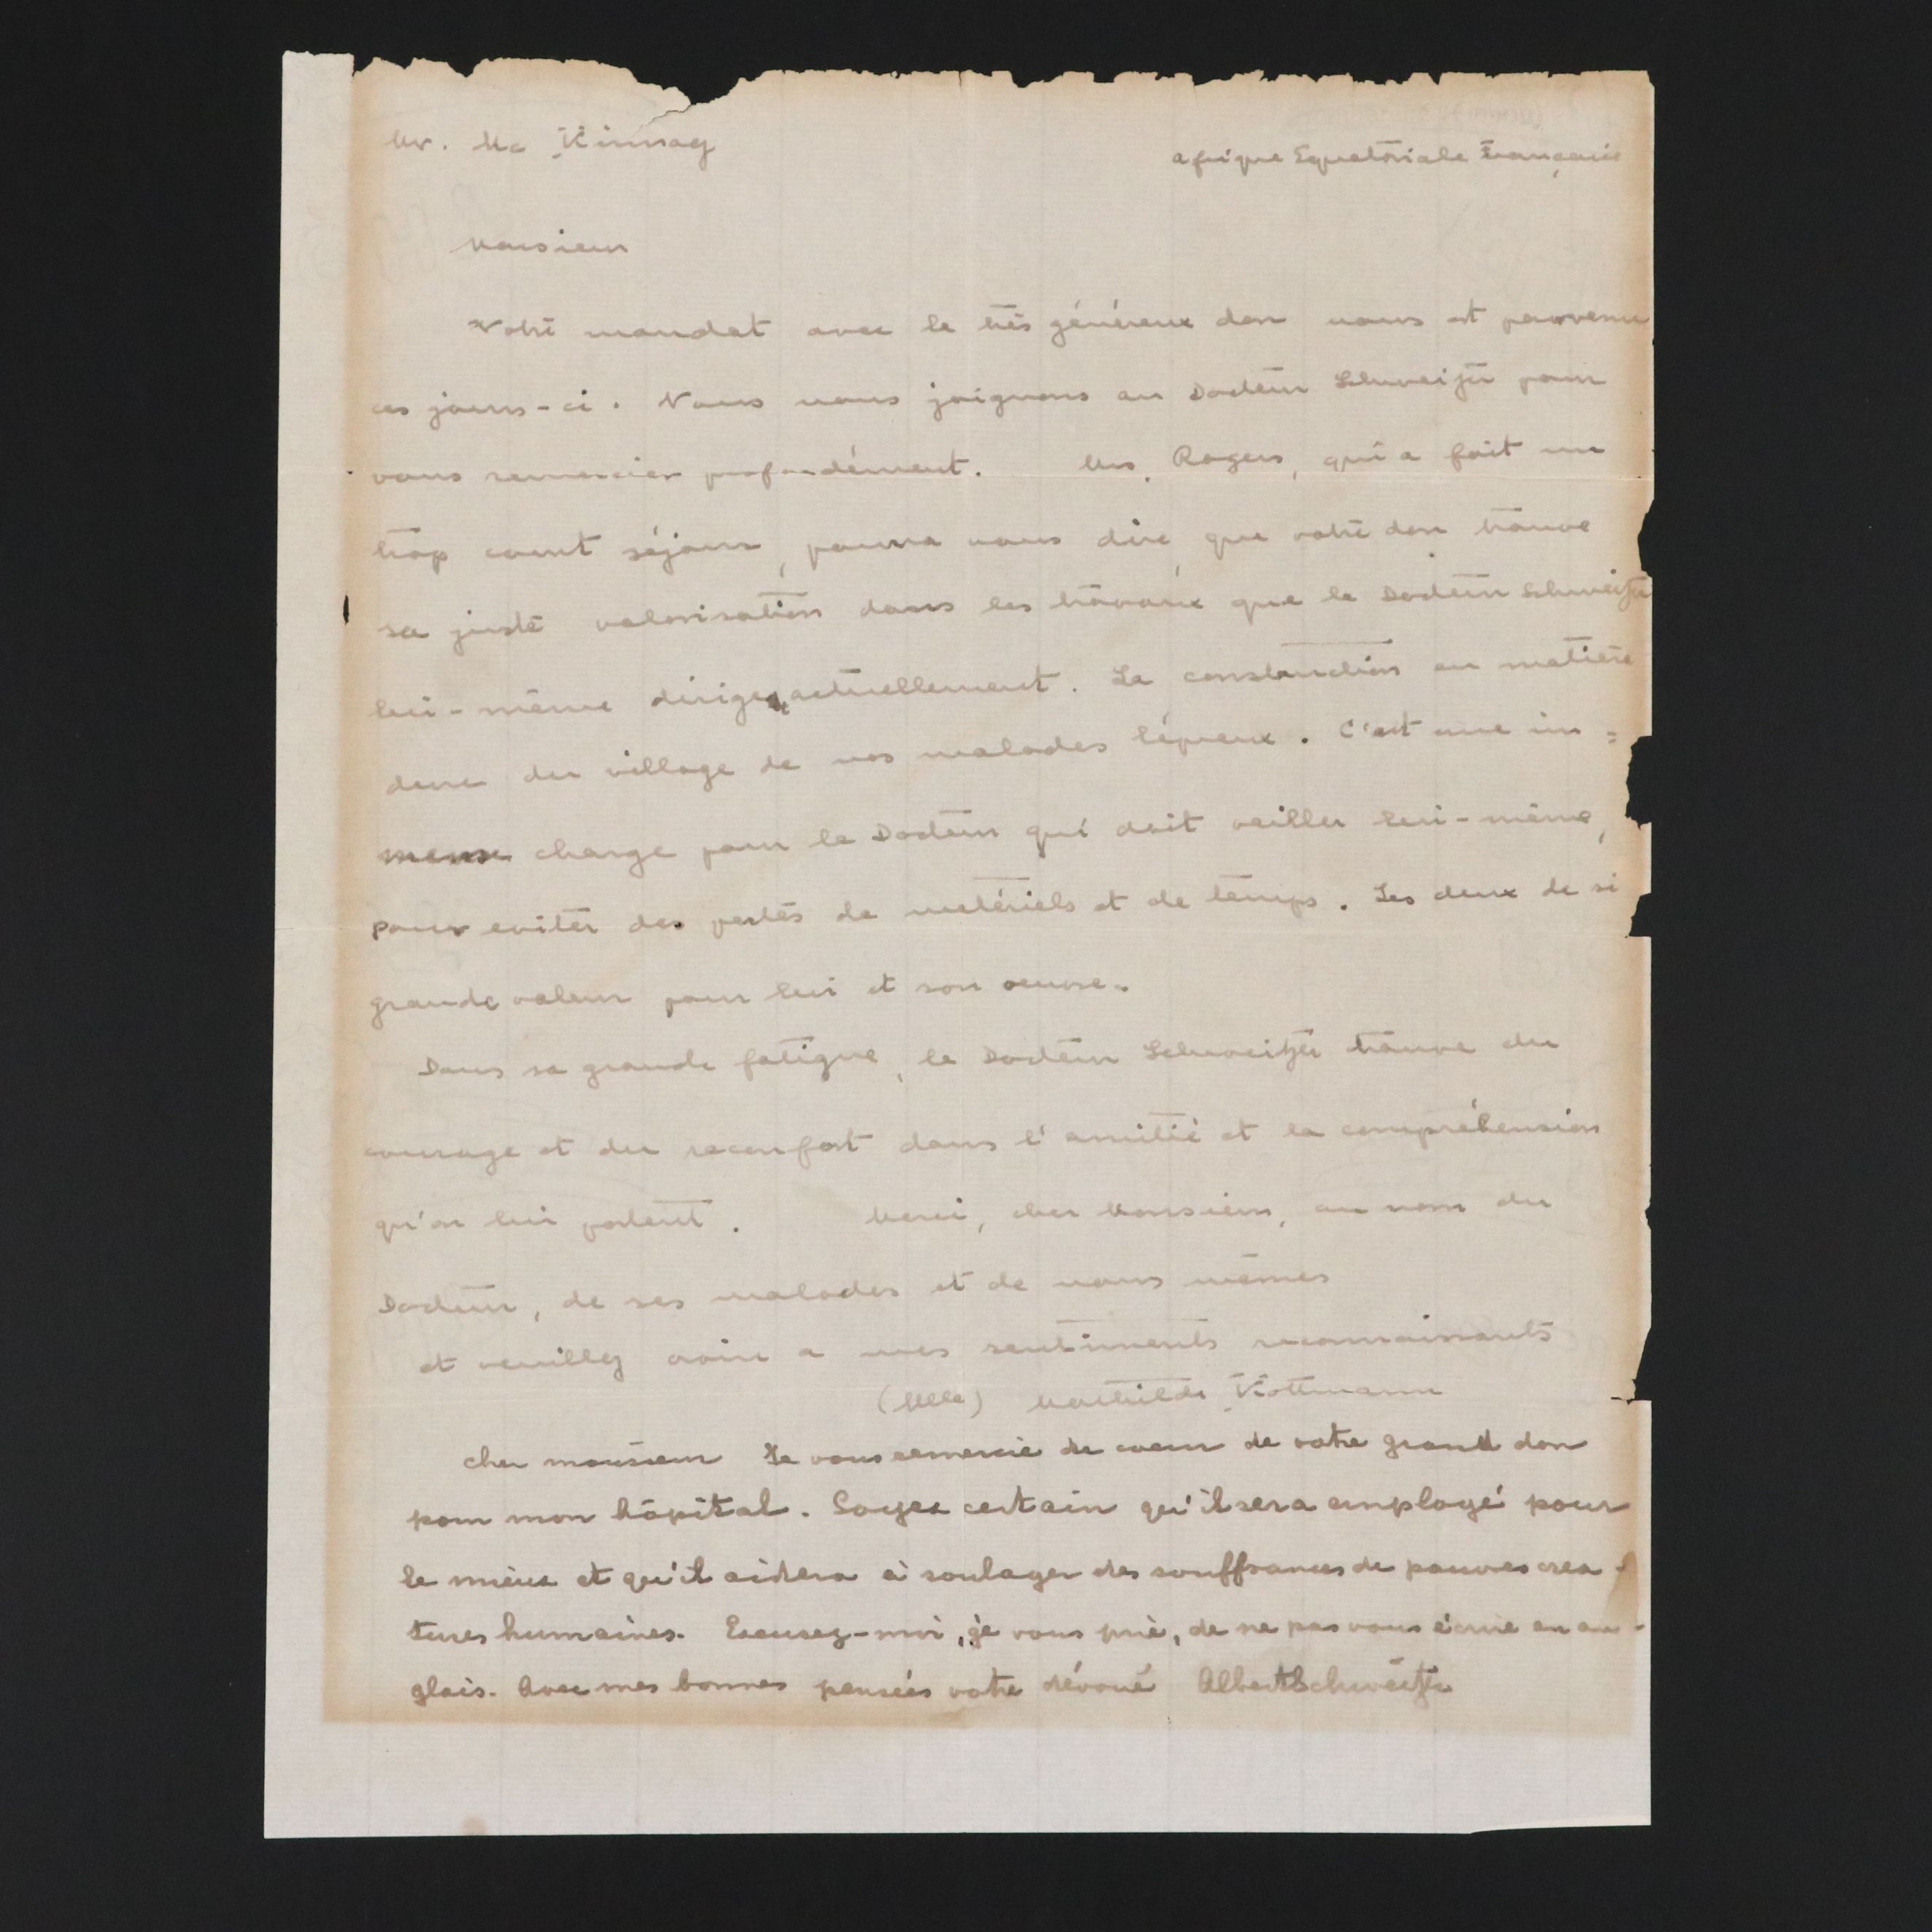 Mr. Mc Kinnay
Afrique Equatoriale Française
Monsieur
Votre mandat avec le très généreux don nous est parvenu
ces jours-ci. Nous nous joignons au Docteur Schweitzer pour
vous remercier profondément. Mrs. Rogers, qui a fait un
trop court séjour, pourra vous dire que votre don trouve
sa juste valorisation dans les travaux que le Docteur Schweitzer
lui-même dirige actuellement. La construction en matière
dure du village de nos malades lépreux. C'est une im=
mense charge pour le Docteur qui doit veiller lui-même,
pour eviter des pertes de matériels et de temps. Les deux de si
grande valeur pour lui et son oeuvre.
Dans sa grande fatigue, le Docteur Schweitzer trouve du
courage et du reconfort dans l'amitié et la compréhension
qu'on lui portent. Merci, cher Monsieur, au nom du
Docteur, de ses malades et de nous mêmes
et veuillez croire a mes sentiments reconnaissants
(Mlle) Mathilde Kottmann
cher monsieur Je vous remercie de coeur de votre grand don
pour mon hôpital. Soyez certain qu'il sera employé pour
le mieux et qu'il aidera à soulager des souffrances de pauvres crea-
tures humaines. Excusez-moi, je vous prie, de ne pas vous écrire en an-
glais. Avec mes bonnes pensées votre dévoué Albert Schweitzer